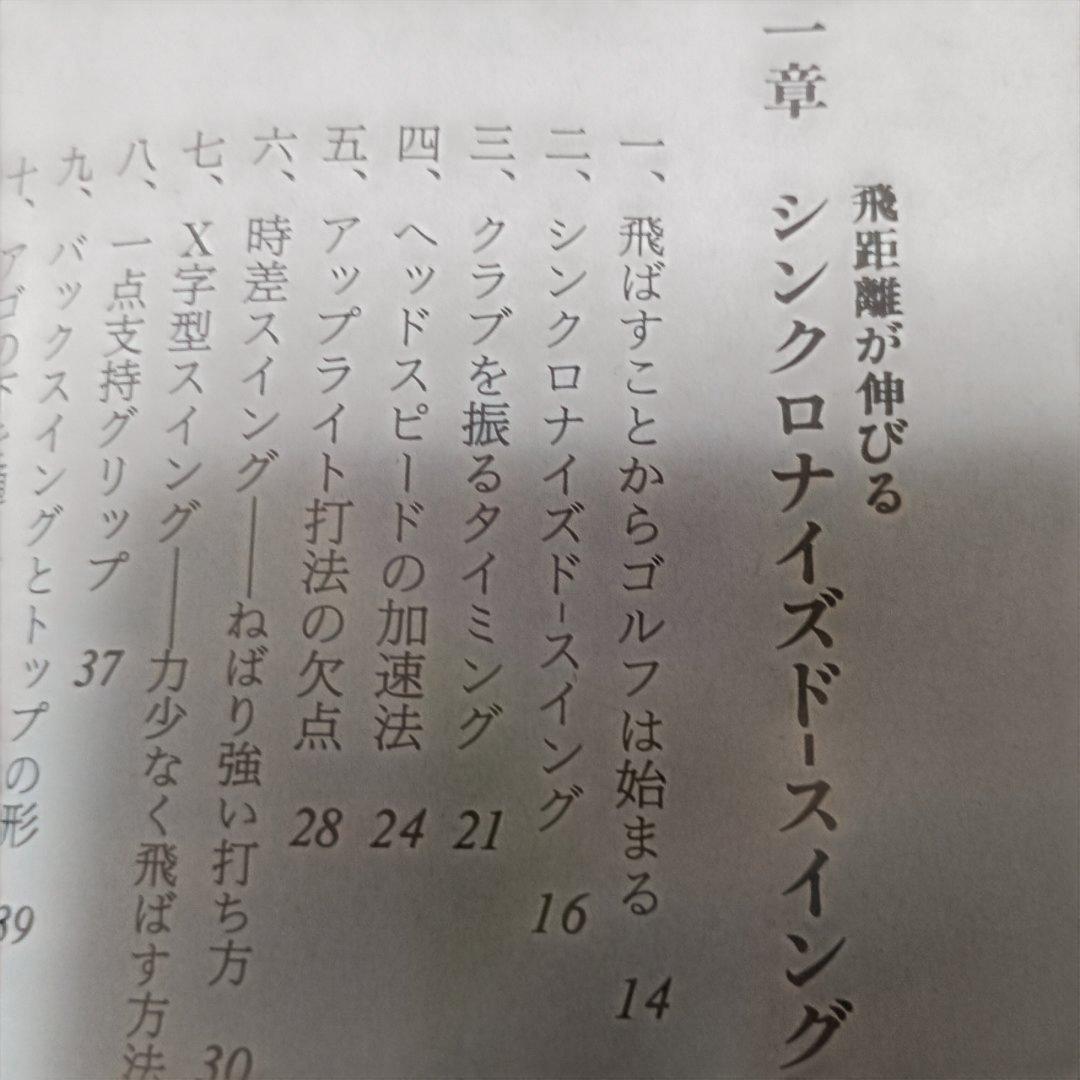 飛距離が伸びる
一章 シンクロナイズド＝スイング
一、飛ばすことからゴルフは始まる 14
二、シンクロナイズド＝スイング 16
三、クラブを振るタイミング 21
四、ヘッドスピードの加速法 24
五、アップライト打法の欠点 28
六、時差スイング――ねばり強い打ち方 30
七、X字型スイング――力少なく飛ばす方法
八、一点支持グリップ 37
九、バックスイングとトップの形 39
十、アゴの下を